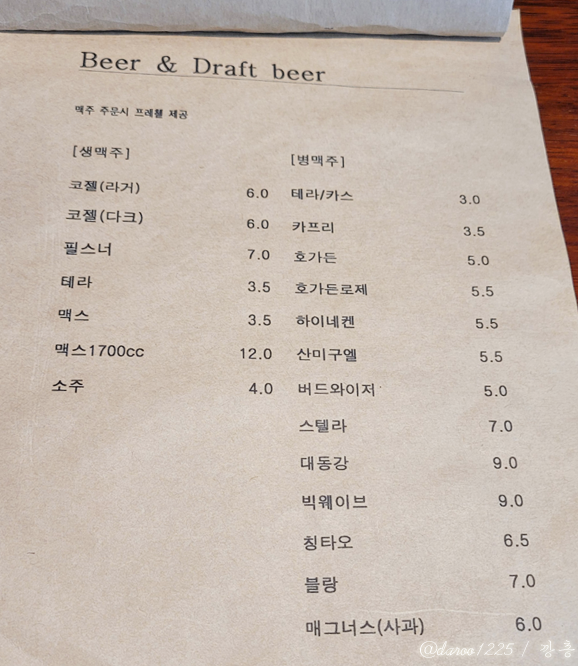 Beer & Draft beer
맥주 주문시 프레첼 제공
[생맥주]
코젤(라거) 6.0
코젤(다크) 6.0
필스너 7.0
테라 3.5
맥스 3.5
맥스1700cc 12.0
소주 4.0
[병맥주]
테라/카스 3.0
카프리 3.5
호가든 5.0
호가든로제 5.5
하이네켄 5.5
산미구엘 5.5
버드와이저 5.0
스텔라 7.0
대동강 9.0
빅웨이브 9.0
칭타오 6.5
블랑 7.0
매그너스(사과) 6.0
@daroo1225 / 깡총